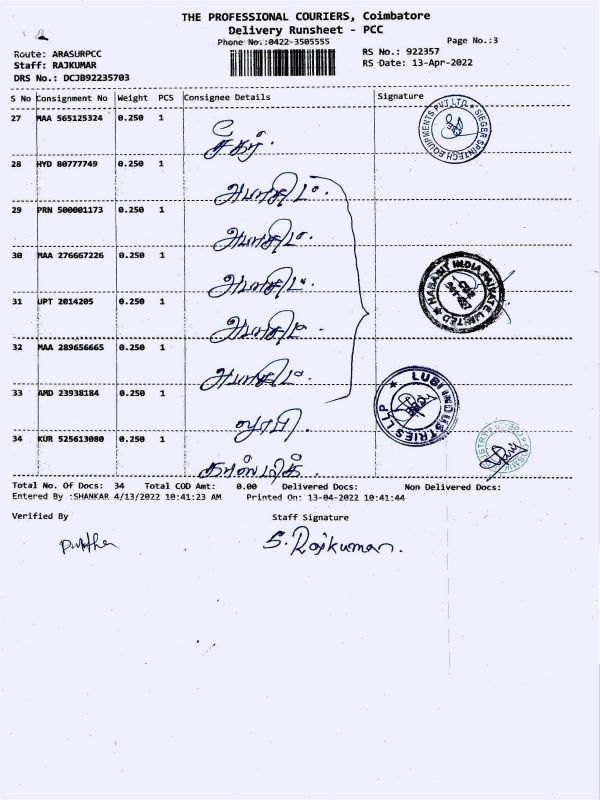 THE PROFESSIONAL COURIERS, Coimbatore
Delivery Runsheet - PCC
Phone No.:0422-3505555
Page No.:3
Route: ARASURPCC
RS No.: 922357
Staff: RAJKUMAR
RS Date: 13-Apr-2022
DRS No.: DCJB92235703
S No Consignment No Weight PCS Consignee Details Signature
27 MAA 565125324 0.250 1
SIEGER SPINTECH EQUIPMENTS PVT.LTD.
28 HYD 80777749 0.250 1
29 PRN 500001173 0.250 1
30 MAA 276667226 0.250 1
HABASIT INDIA PRIVATE LIMITED
31 UPT 2014205 0.250 1
32 MAA 289656665 0.250 1
33 AMD 23938184 0.250 1
LUBI INDUSTRIES LLP
34 KUR 525613080 0.250 1
Total No. Of Docs: 34 Total COD Amt: 0.00 Delivered Docs: Non Delivered Docs:
Entered By :SHANKAR 4/13/2022 10:41:23 AM Printed On: 13-04-2022 10:41:44
Verified By Staff Signature
S. Rajkumar.